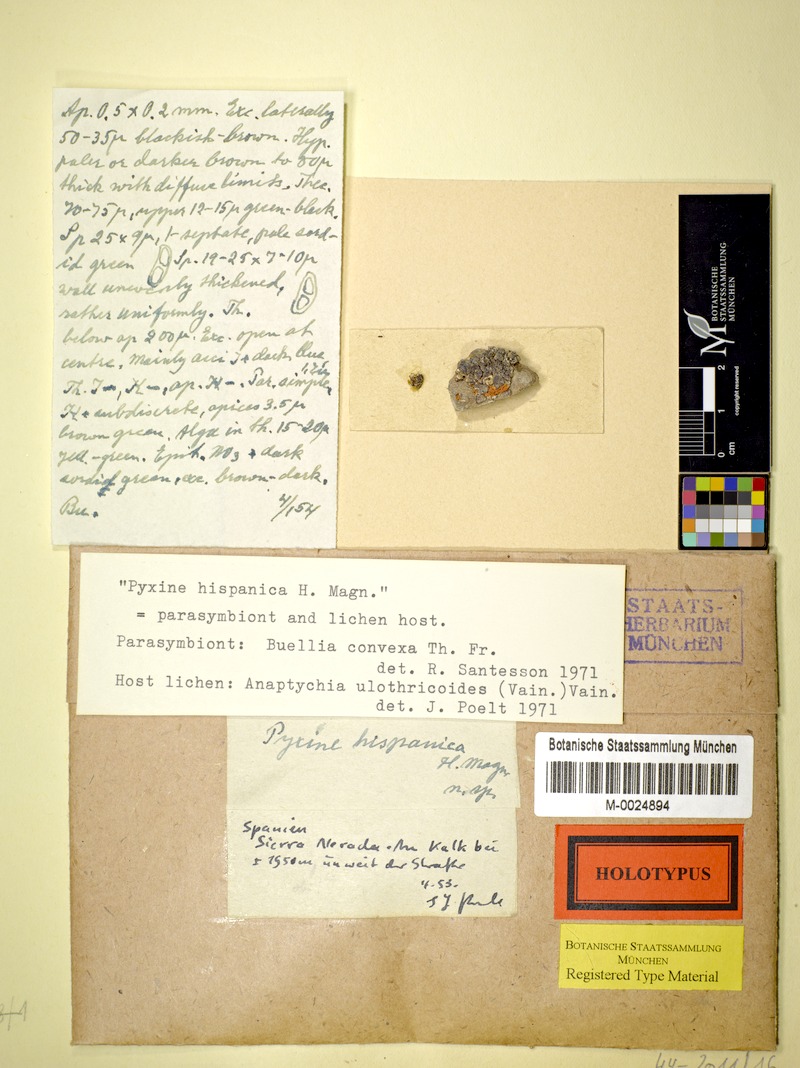 Ap. 0.5 x 0.2 mm. Exc. laterally
50-35µ blackish-brown. Hyp.
paler or darker brown to 80µ
thick with diffuse limits. Thec.
70-75µ, upper 12-15µ green-black.
Sp 25 x 9µ, 1-septate, pale sord-
id green Sp. 19-25 x 7-10µ
wall unevenly thickened,
rather uniformly. Th.
below ap 200µ. Exc. open at
centre. Mainly asci J+ dark blue
Th. J-, K-, ap. K-. Par. simple,
K+ subdiscrete, apices 3.5µ
brown green. Alga in th. 15-20µ
yell.-green. Epith. NO3 + dark
sordid green, exc. brown-dark.
Bu. 4/154
BOTANISCHE
STAATSSAMMLUNG
MÜNCHEN
copyright reserved
0 1 2
cm
"Pyxine hispanica H. Magn."
= parasymbiont and lichen host.
Parasymbiont: Buellia convexa Th. Fr.
det. R. Santesson 1971
Host lichen: Anaptychia ulothricoides (Vain.)Vain.
det. J. Poelt 1971
STAATS-
HERBARIUM
MÜNCHEN
Pyxine hispanica
H. Magn
n. sp.
Spanien
Sierra Nevada. An Kalk bei
± 1950m unweit der Straße
4.53.
Botanische Staatssammlung München
M-0024894
HOLOTYPUS
BOTANISCHE STAATSSAMMLUNG
MÜNCHEN
Registered Type Material